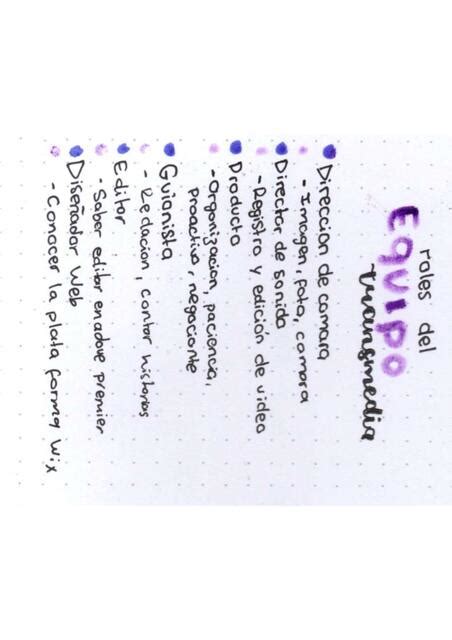 roles del
EQUIPO
transmedia
Direccion de camara
- Imagen, foto, camara
Director de sonido
- Registro y edición de video
Producto
- Organizacion, paciencia,
proactivo, negociante
Guionista
- Redacion, contar historias
Editor
- Saber editar en adove premier
Diseñador Web
- Conocer la plata forma Wix